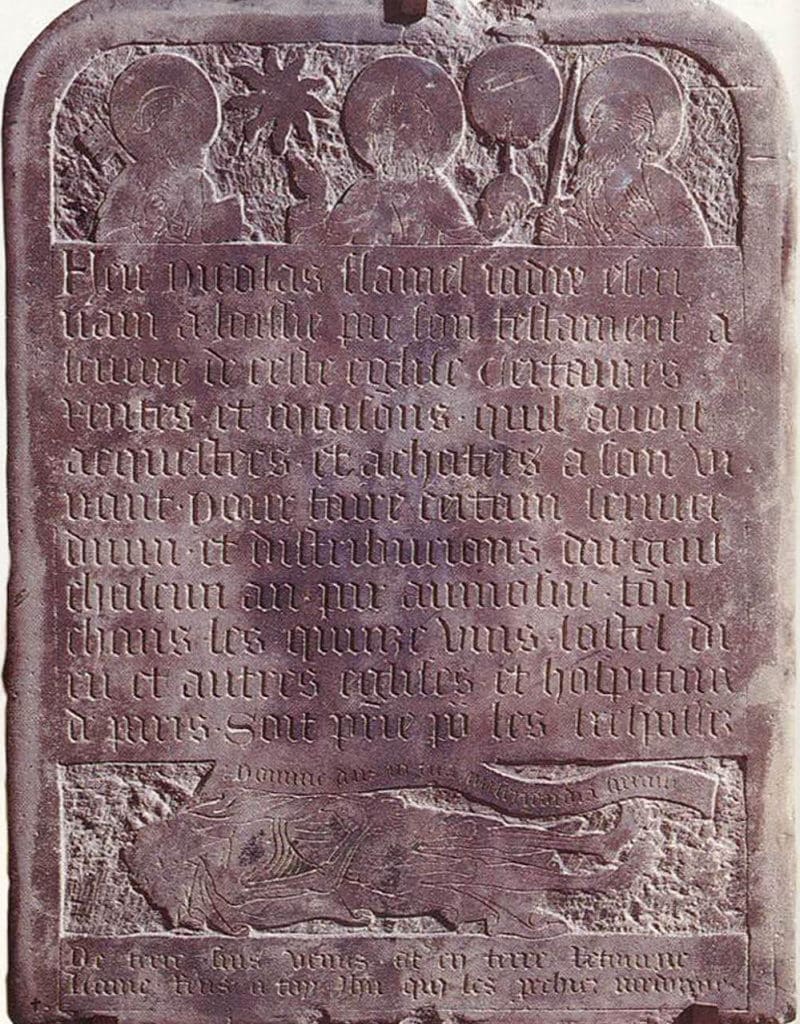 Feu nicolas flamel iadis escri
uain a laissie par son testament a
leuure de ceste eglise certaines
rentes · et maisons · quil auoit
acquestees · et achatees a son vi
uant · pour faire certain seruice
diuin · et distribucions dargent
chascun an · par aumosne · tou
chans · les quinze vins · lostel di
eu et autres eglises et hospitaux
d paris · Soit prie po les trespassez
Domine deus in tua misericordia speraui
De terre suis venus et en terre retourne
Lame rens a toy Jhu qui les pechiez